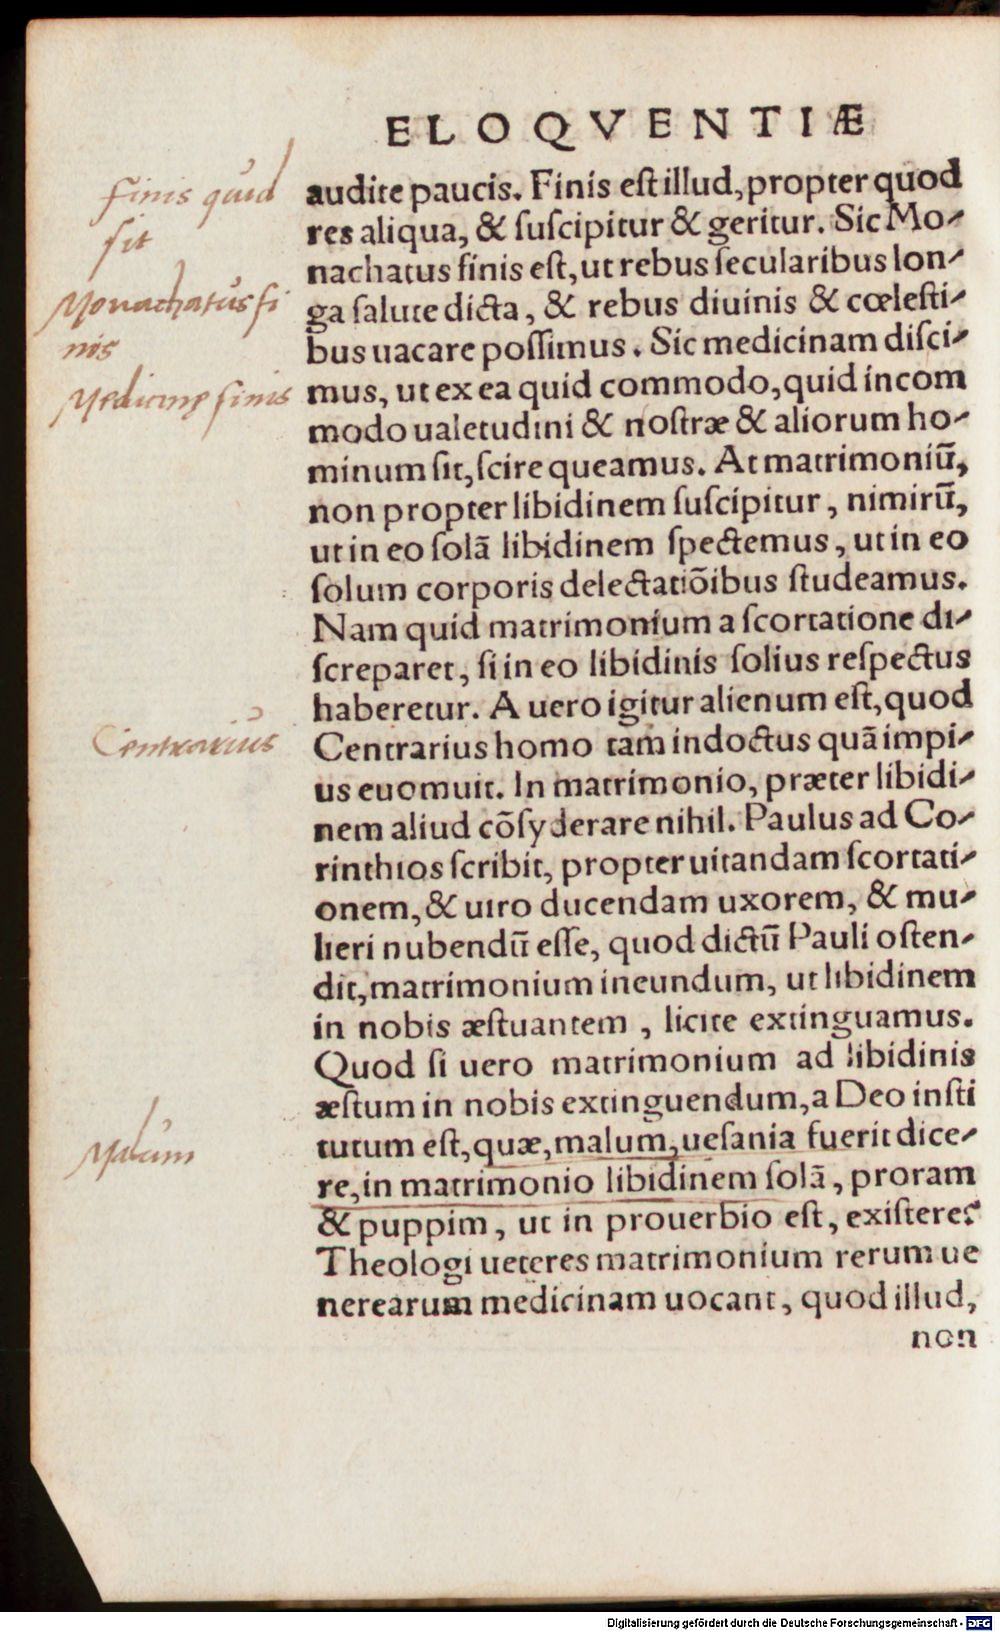 ELOQVENTIÆ
Finis quid
sit
Monachatus fi
nis
Medicinę finis
Centrarius
Malum
audite paucis. Finis eſt illud, propter quod
res aliqua, & ſuſcipitur & geritur. Sic Mo-
nachatus finis eſt, ut rebus ſecularibus lon-
ga ſalute dicta, & rebus diuinis & cœleſti-
bus uacare poſſimus. Sic medicinam diſci-
mus, ut ex ea quid commodo, quid incom
modo ualetudini & noſtræ & aliorum ho-
minum ſit, ſcire queamus. At matrimoniū,
non propter libidinem ſuſcipitur, nimirū,
ut in eo ſolā libidinem ſpectemus, ut in eo
ſolum corporis delectatiōibus ſtudeamus.
Nam quid matrimonium a ſcortatione di-
ſcreparet, ſi in eo libidinis ſolius reſpectus
haberetur. A uero igitur alienum eſt, quod
Centrarius homo tam indoctus quā impi-
us euomuit. In matrimonio, præter libidi-
nem aliud cōſyderare nihil. Paulus ad Co-
rinthios ſcribit, propter uitandam ſcortati-
onem, & uiro ducendam uxorem, & mu-
lieri nubendū eſſe, quod dictū Pauli oſten-
dit, matrimonium ineundum, ut libidinem
in nobis æſtuantem, licite extinguamus.
Quod ſi uero matrimonium ad libidinis
æſtum in nobis extinguendum, a Deo inſti
tutum eſt, quæ, malum, ueſania fuerit dice-
re, in matrimonio libidinem ſolā, proram
& puppim, ut in prouerbio eſt, exiſtere?
Theologi ueteres matrimonium rerum ue
nerearum medicinam uocant, quod illud,
non
Digitalisierung gefördert durch die Deutsche Forschungsgemeinschaft - DFG